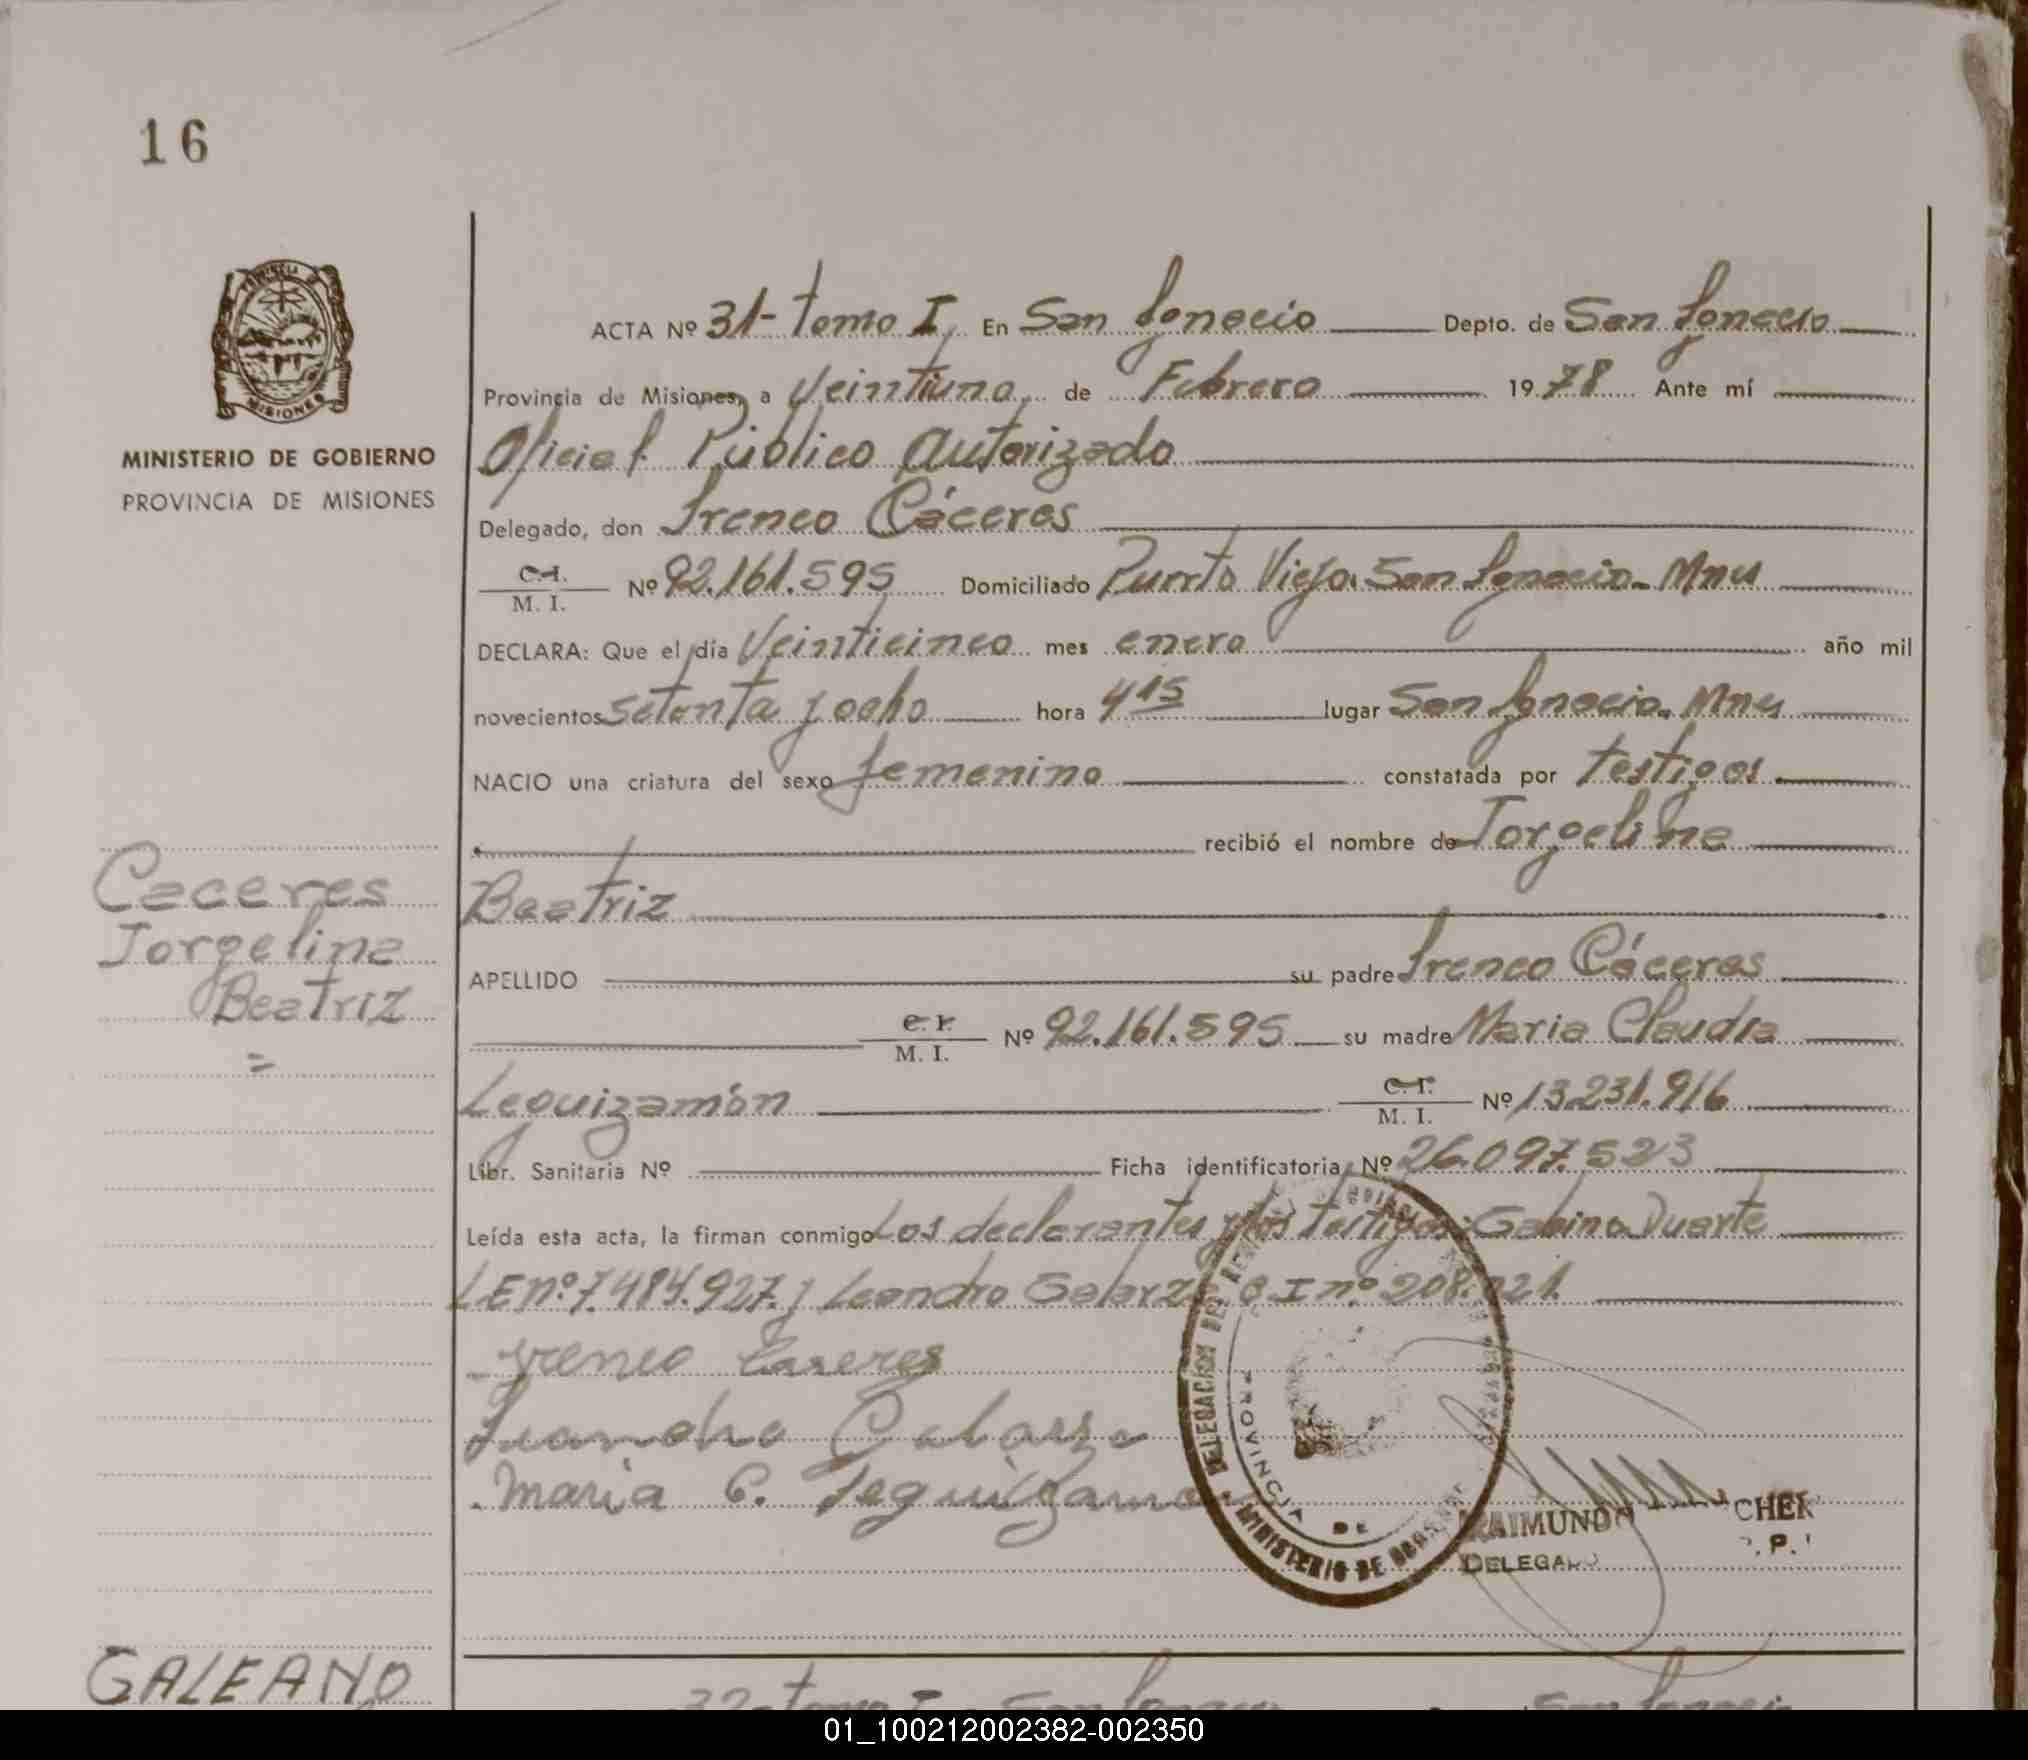 16
MINISTERIO DE GOBIERNO
PROVINCIA DE MISIONES
ACTA Nº 31- tomo I, En San Ignacio Depto. de San Ignacio
Provincia de Misiones, a Veintiuno de Febrero 1978 Ante mí
Oficial Público Autorizado
Delegado, don Ireneo Cáceres
C.I. / M. I. Nº 92.161.595 Domiciliado Puerto Viejo. San Ignacio. Mnes
DECLARA: Que el día Veinticinco mes enero año mil
novecientos setenta y ocho hora 4 15 lugar San Ignacio. Mnes
NACIO una criatura del sexo femenino constatada por testigos.
recibió el nombre de Jorgelina
Beatriz
Caceres
Jorgelina
Beatriz
=
APELLIDO su padre Ireneo Cáceres
C. I. / M. I. Nº 92.161.595 su madre Maria Claudia
Leguizamón C. I. / M. I. Nº 13.231.916
Libr. Sanitaria Nº Ficha identificatoria Nº 26.097.523
Leída esta acta, la firman conmigo Los declarantes y los testigos: Gabino Duarte
LE nº 7.484.927. y Leandro Galarza C I nº 208.021.
Ireneo Caseres
Leandro Galarza
Maria C. Leguizamon
DELEGACIÓN DEL
PROVINCIA DE
MINISTERIO DE
RAIMUNDO CHER
DELEGADO .P.
GALEANO
32- tomo I San Ignacio San Ignacio
01_100212002382-002350